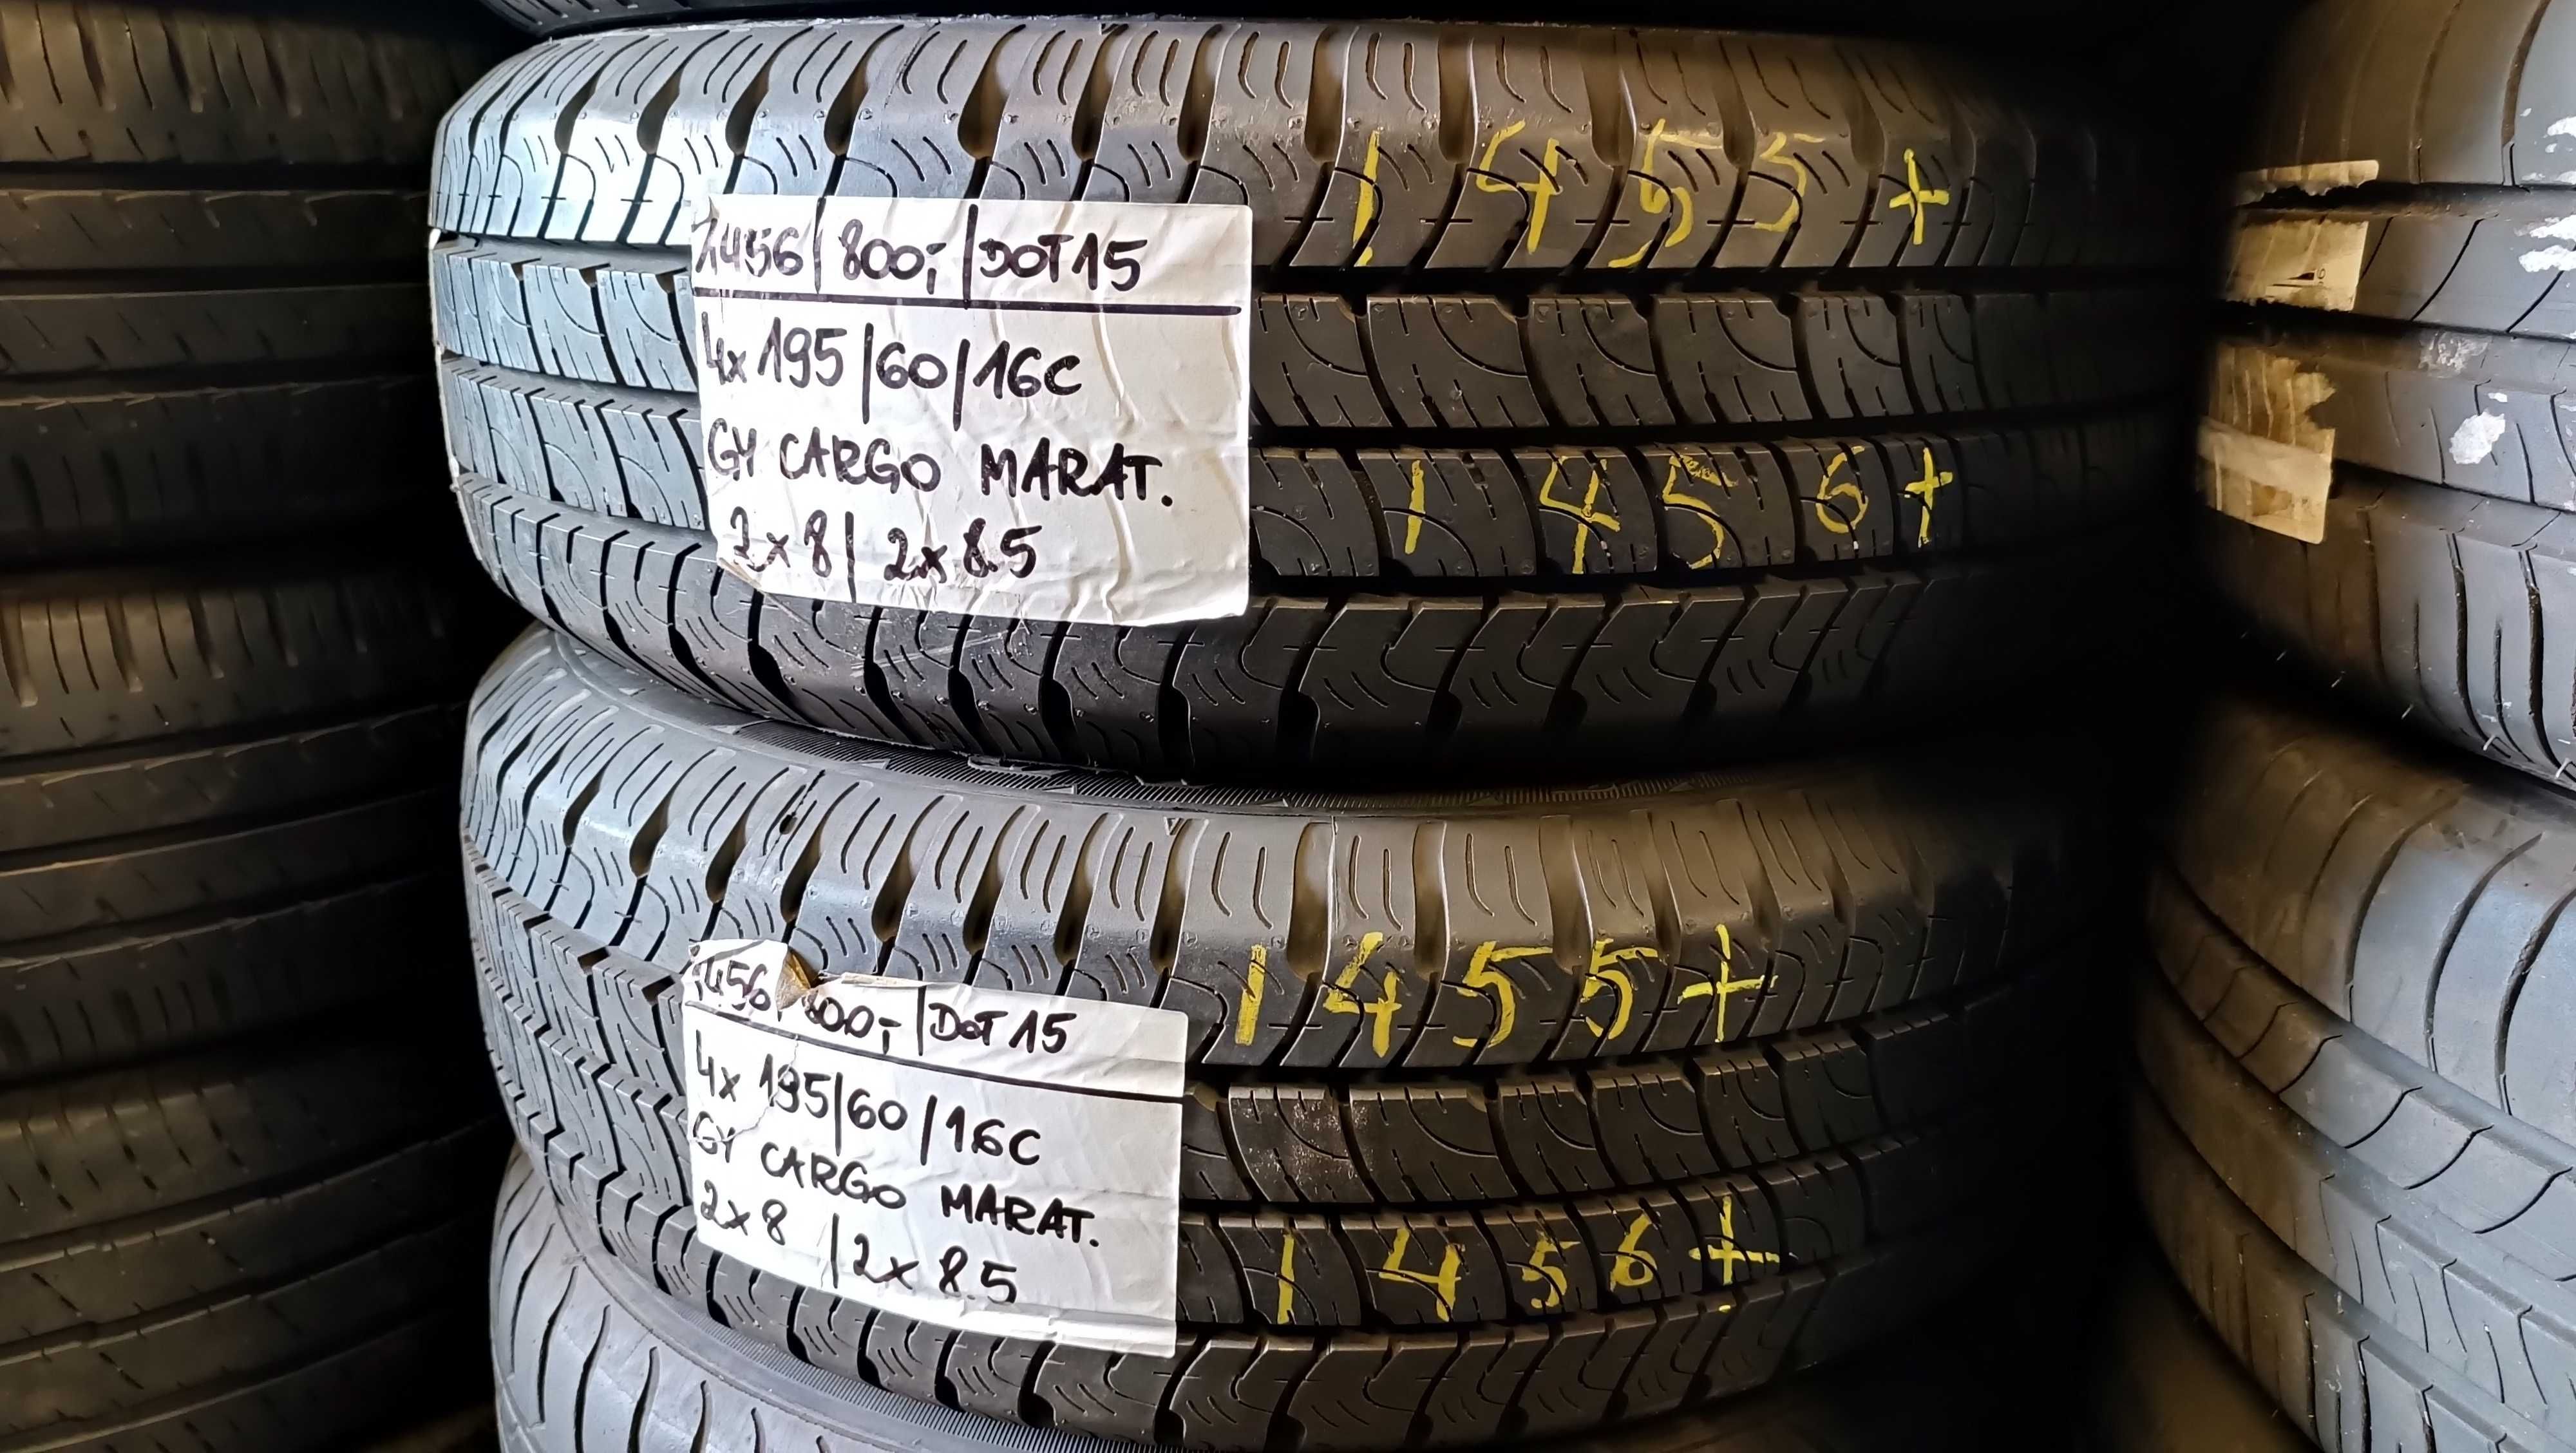 1456 | 800,- | DOT 15
4x 195/60/16C
GY CARGO MARAT.
2x8 | 2x8.5
1455+
1456+
1456 | 800,- | DOT 15
4x 195/60/16C
GY CARGO MARAT.
2x8 | 2x8.5
1455+
1456+